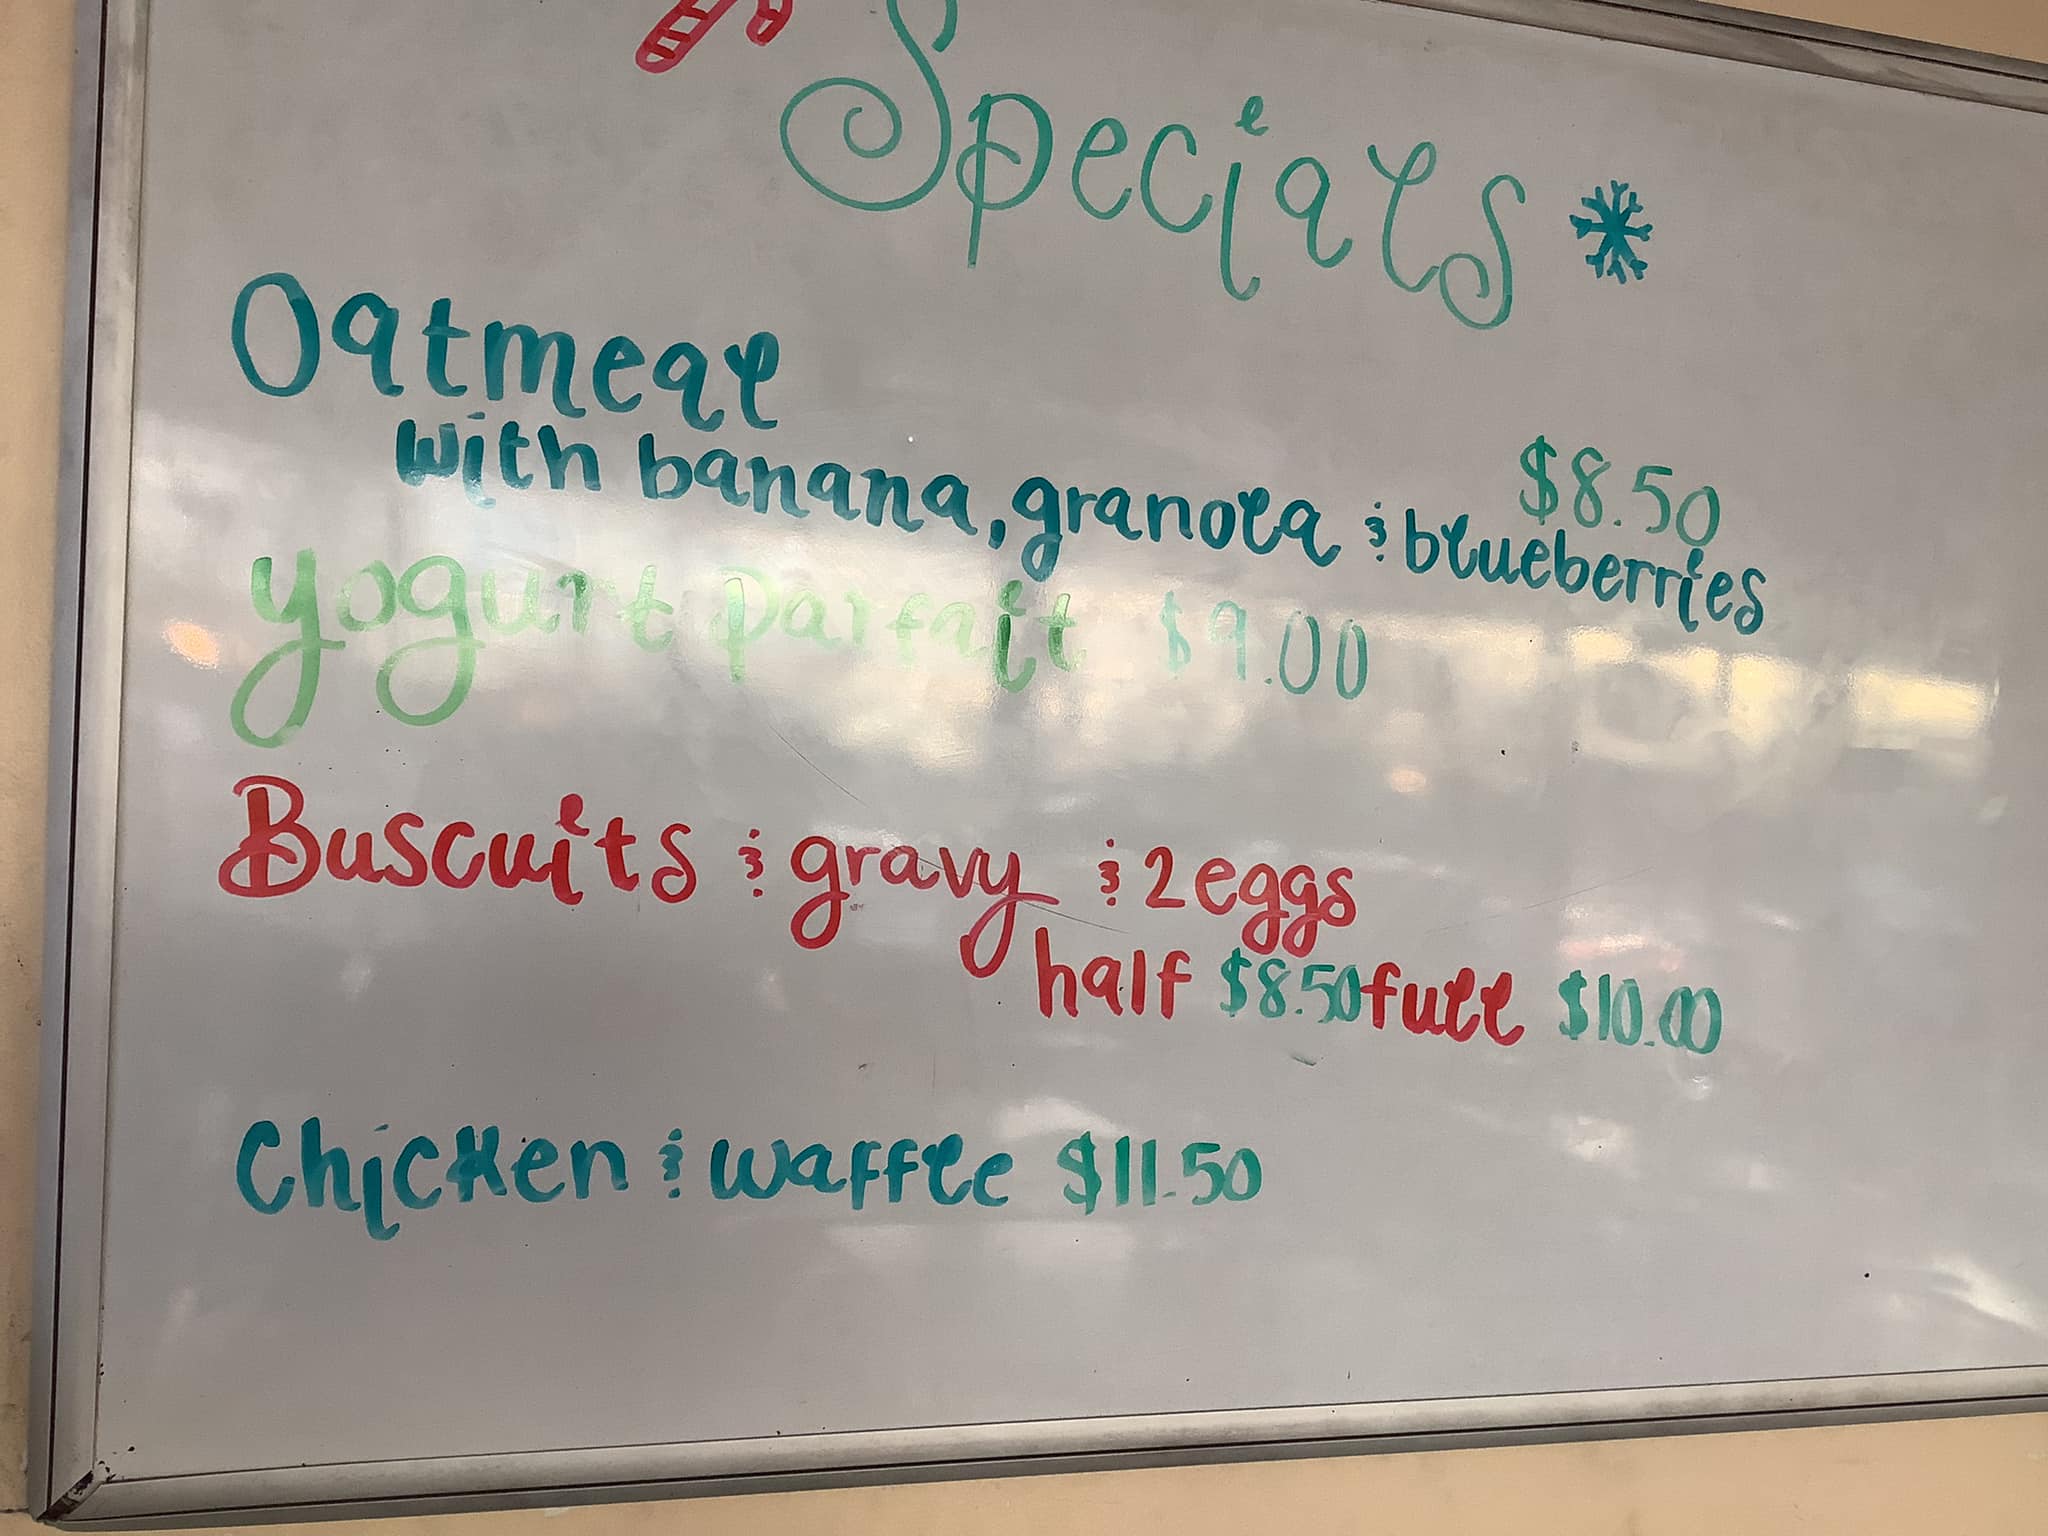 Specials
Oatmeal
$8.50
with banana, granola & blueberries
yogurt parfait $9.00
Buscuits & gravy & 2 eggs
half $8.50 full $10.00
Chicken & waffle $11.50